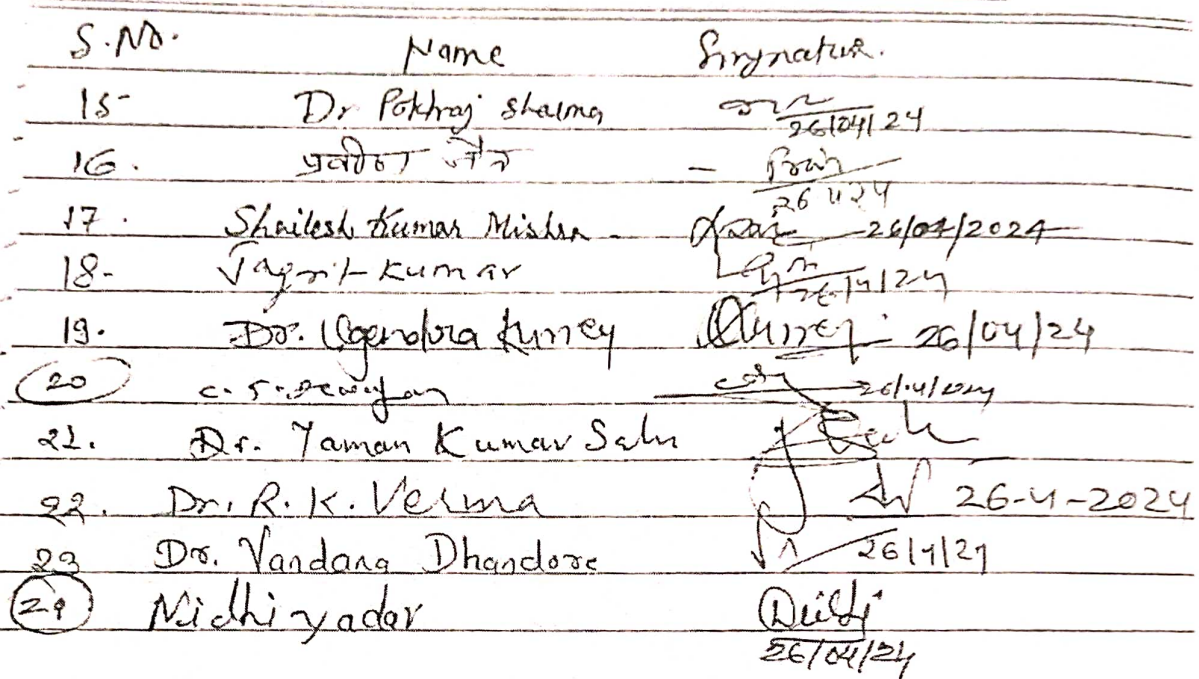 S.No. Name Sirynature.
15 Dr Pokhraj Sharma 26/04/24
16. प्रवीण जैन - 26 4 24
17. Shailesh Kumar Mishra - 26/04/2024
18- Jagrit Kumar 26/4/24
19. Dr. Ugendra Kurrey Kurrey 26/04/24
20 C.S. Dewangan 26/4/2024
21. Dr. Yaman Kumar Sahu
22. Dr. R. K. Verma 26-4-2024
23 Dr. Vandana Dhandore 26/4/24
24 Nidhi yadav
26/04/24